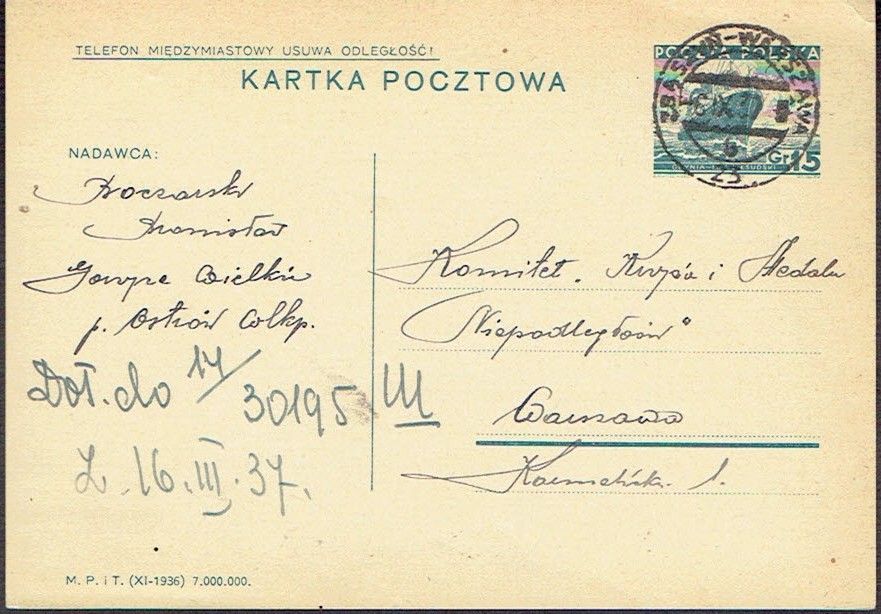 TELEFON MIĘDZYMIASTOWY USUWA ODLEGŁOŚĆ!
KARTKA POCZTOWA
POCZTA POLSKA
ZBĄSZYŃ-WARSZAWA
IX
23
Gr 15
GDYNIA-
NADAWCA:
Stanisław
Wielkie
p. Ostrów Wlkp.
Komitet „Krzyża i Medalu
Niepodległości"
Warszawa
1.
Dot. do 14/30195 III
Z 16.III.37.
M. P. i T. (XI-1936) 7.000.000.